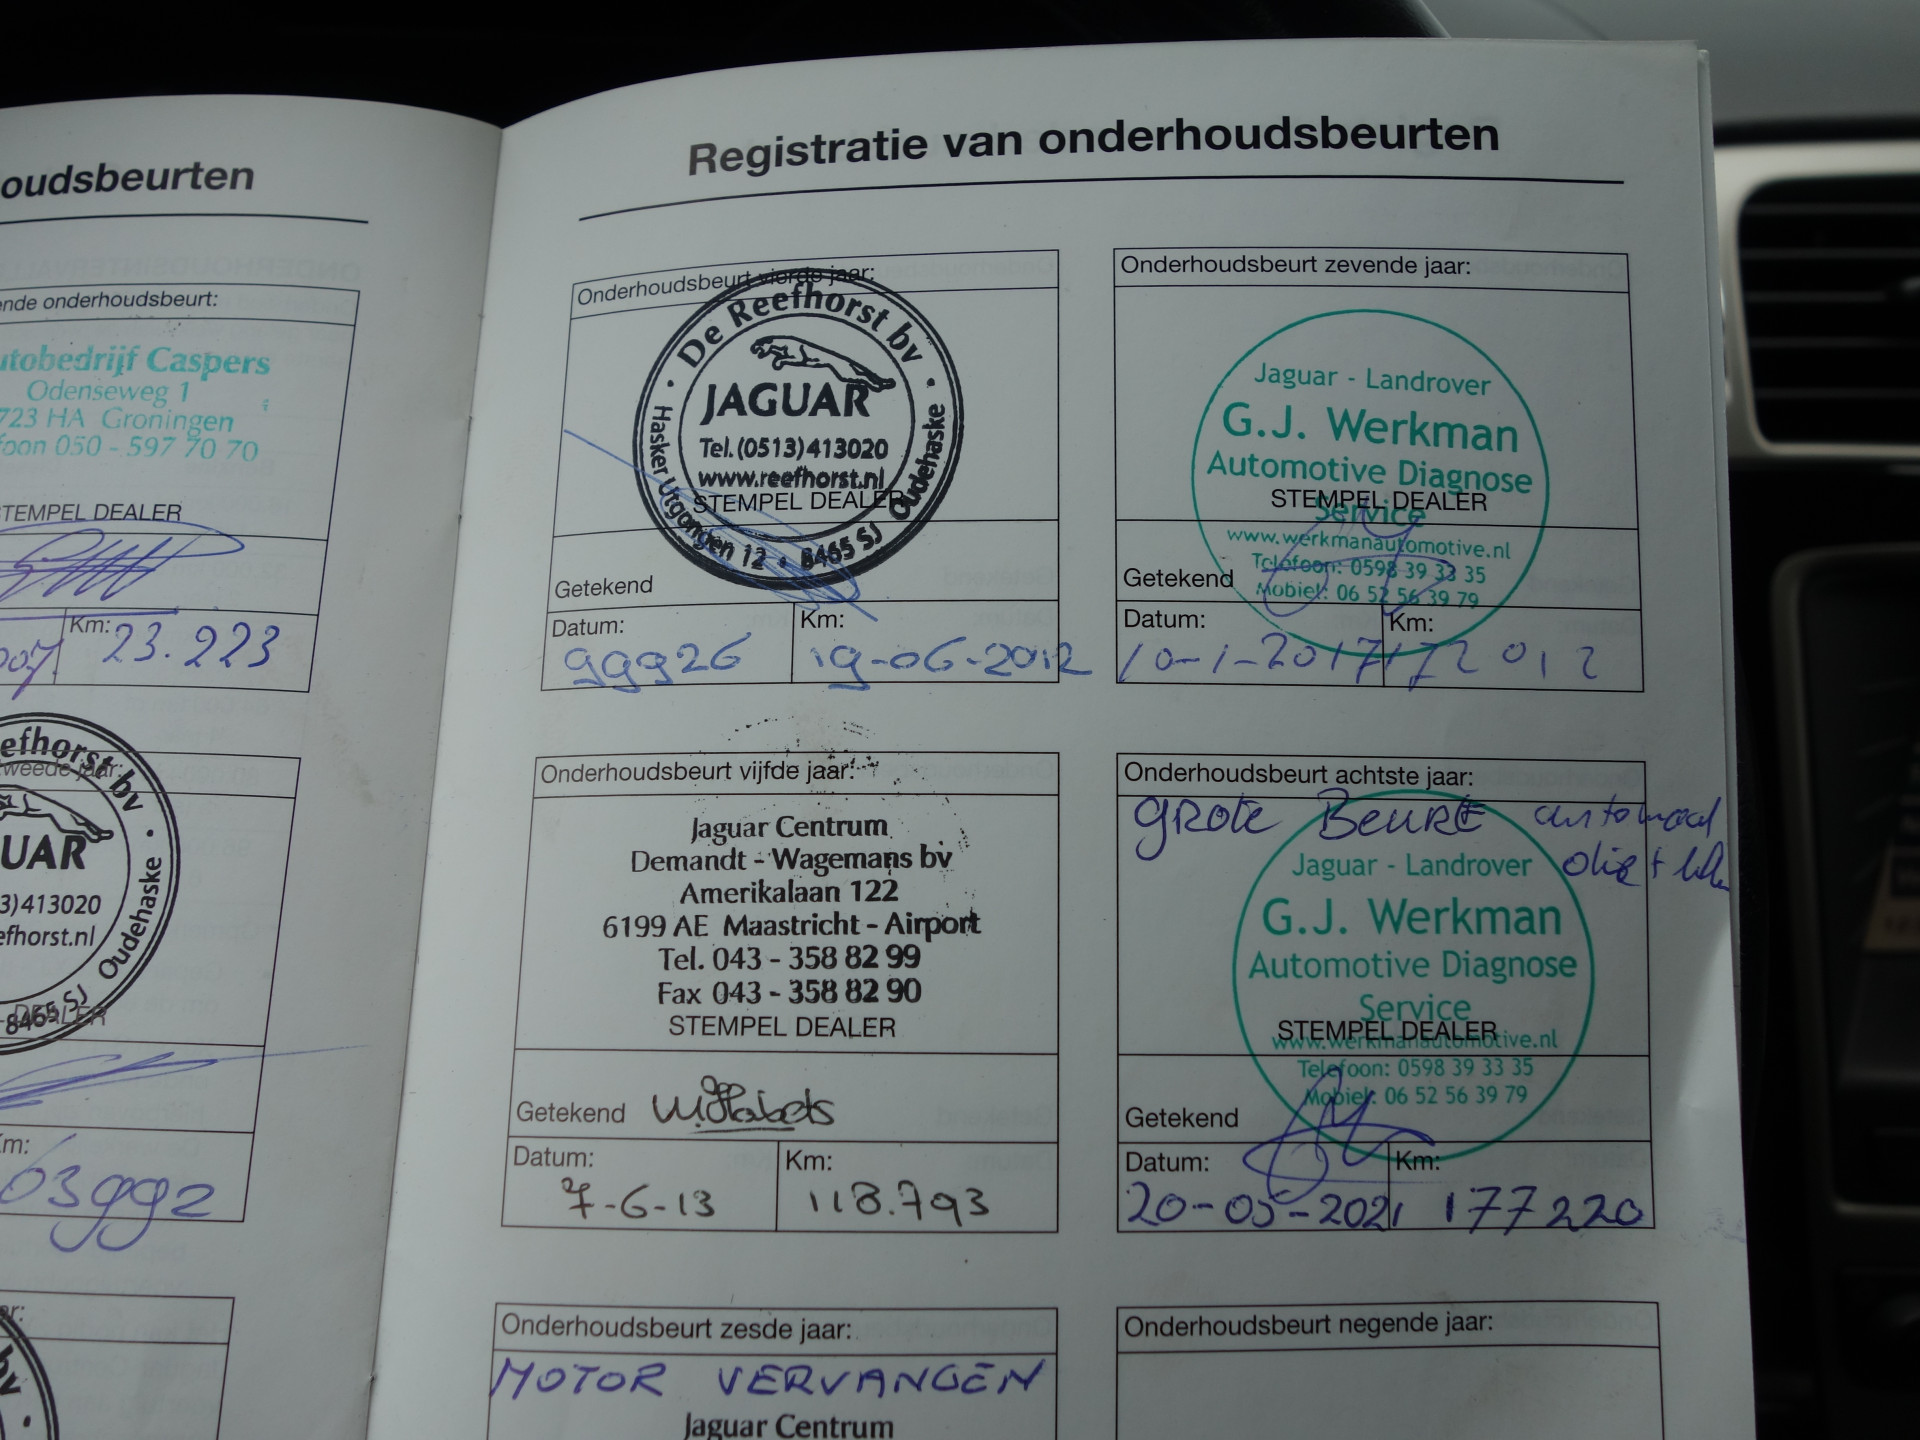 oudsbeurten
ende onderhoudsbeurt:
utobedrijf Caspers
Odenseweg 1
723 HA Groningen
foon 050 - 597 70 70
STEMPEL DEALER
Km:
23.223
efhorst bv
tweede jaar:
UAR
3)413020
efhorst.nl
Oudehaske
8465 SJ
DEALER
Km:
03992
Registratie van onderhoudsbeurten
Onderhoudsbeurt vierde jaar:
De Reefhorst bv
JAGUAR
Tel.(0513)413020
www.reefhorst.nl
STEMPEL DEALER
Hasker Utgongen 12 • 8465 SJ Oudehaske
Getekend
Datum:
99926
Km:
19-06-2012
Onderhoudsbeurt vijfde jaar:
Jaguar Centrum
Demandt - Wagemans bv
Amerikalaan 122
6199 AE Maastricht - Airport
Tel. 043 - 358 82 99
Fax 043 - 358 82 90
STEMPEL DEALER
Getekend
Datum:
7-6-13
Km:
118.793
Onderhoudsbeurt zesde jaar:
MOTOR VERVANGEN
Jaguar Centrum
Onderhoudsbeurt zevende jaar:
Jaguar - Landrover
G.J. Werkman
Automotive Diagnose
STEMPEL DEALER
Service
www.werkmanautomotive.nl
Telefoon: 0598 39 33 35
Getekend
Mobiel: 06 52 56 39 79
Datum:
10-1-2017
Km:
172012
Onderhoudsbeurt achtste jaar:
GROTE BEURT automaat
olie +
Jaguar - Landrover
G.J. Werkman
Automotive Diagnose
Service
STEMPEL DEALER
www.werkmanautomotive.nl
Telefoon: 0598 39 33 35
Mobiel: 06 52 56 39 79
Getekend
Datum:
20-05-2021
Km:
177220
Onderhoudsbeurt negende jaar: